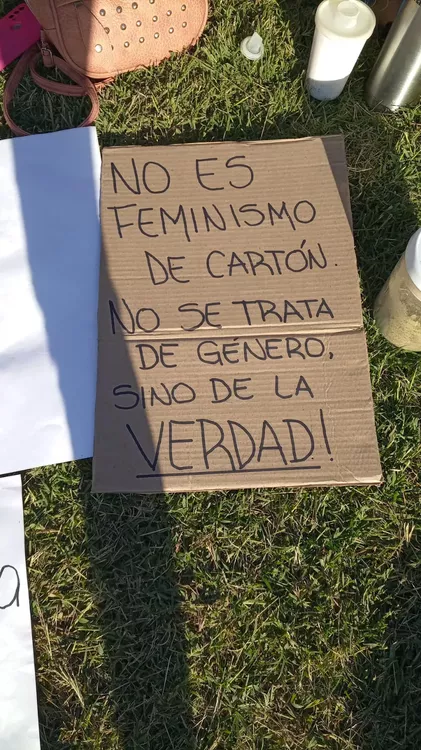 NO ES
FEMINISMO
DE CARTÓN.
NO SE TRATA
DE GÉNERO,
SINO DE LA
VERDAD!
a